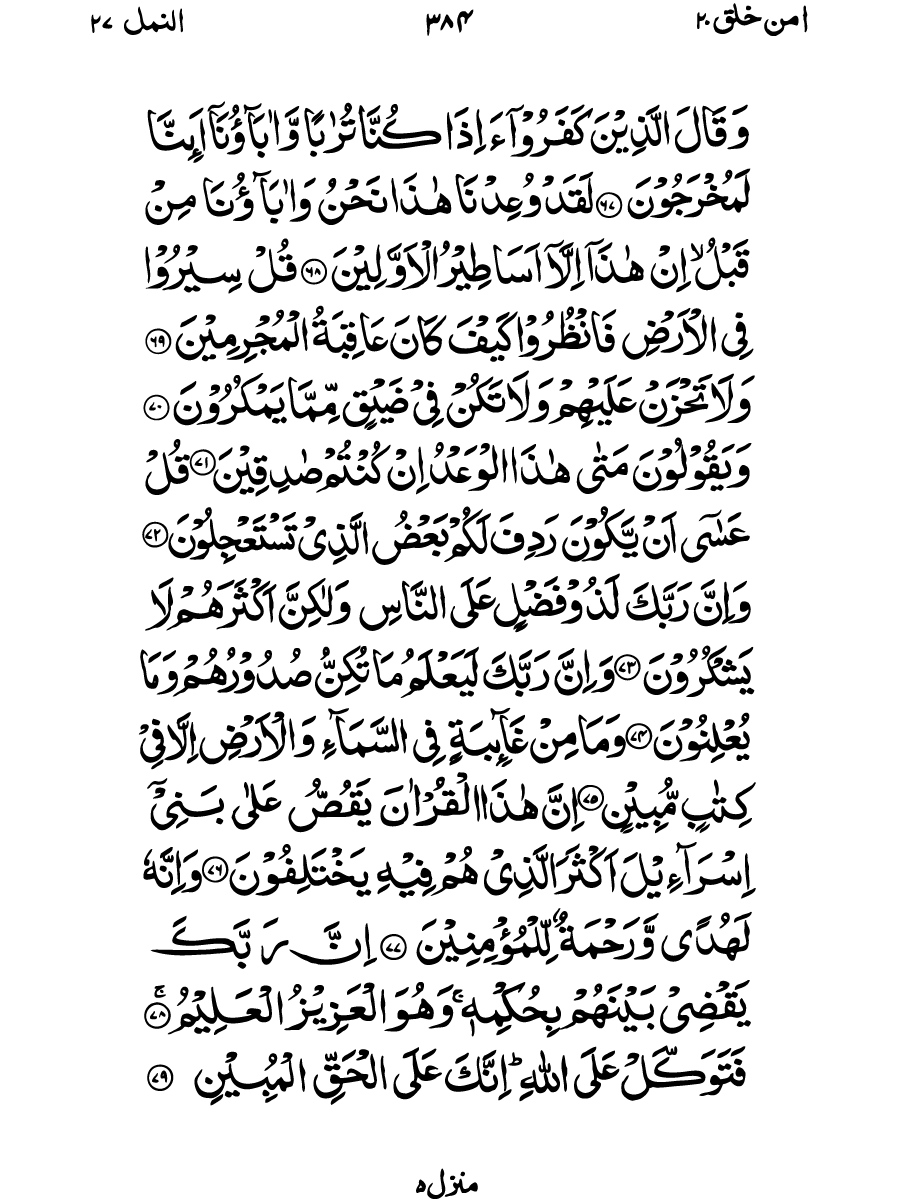 امن خلق ۲۰ ۳۸۴ النمل ۲۷
وَقَالَ الَّذِيْنَ كَفَرُوْٓا ءَاِذَا كُنَّا تُرٰبًا وَّاٰبَآؤُنَآ اَئِنَّا
لَمُخْرَجُوْنَ ﴿۶۷﴾ لَقَدْ وُعِدْنَا هٰذَا نَحْنُ وَاٰبَآؤُنَا مِنْ
قَبْلُ ۙ اِنْ هٰذَآ اِلَّآ اَسَاطِيْرُ الْاَوَّلِيْنَ ﴿۶۸﴾ قُلْ سِيْرُوْا
فِى الْاَرْضِ فَانْظُرُوْا كَيْفَ كَانَ عَاقِبَةُ الْمُجْرِمِيْنَ ﴿۶۹﴾
وَلَا تَحْزَنْ عَلَيْهِمْ وَلَا تَكُنْ فِىْ ضَيْقٍ مِّمَّا يَمْكُرُوْنَ ﴿۷۰﴾
وَيَقُوْلُوْنَ مَتٰى هٰذَا الْوَعْدُ اِنْ كُنْتُمْ صٰدِقِيْنَ ﴿۷۱﴾ قُلْ
عَسٰٓى اَنْ يَّكُوْنَ رَدِفَ لَكُمْ بَعْضُ الَّذِىْ تَسْتَعْجِلُوْنَ ﴿۷۲﴾
وَاِنَّ رَبَّكَ لَذُوْ فَضْلٍ عَلَى النَّاسِ وَلٰكِنَّ اَكْثَرَهُمْ لَا
يَشْكُرُوْنَ ﴿۷۳﴾ وَاِنَّ رَبَّكَ لَيَعْلَمُ مَا تُكِنُّ صُدُوْرُهُمْ وَمَا
يُعْلِنُوْنَ ﴿۷۴﴾ وَمَا مِنْ غَآئِبَةٍ فِى السَّمَآءِ وَالْاَرْضِ اِلَّا فِىْ
كِتٰبٍ مُّبِيْنٍ ﴿۷۵﴾ اِنَّ هٰذَا الْقُرْاٰنَ يَقُصُّ عَلٰى بَنِىْٓ
اِسْرَآءِيْلَ اَكْثَرَ الَّذِىْ هُمْ فِيْهِ يَخْتَلِفُوْنَ ﴿۷۶﴾ وَاِنَّهٗ
لَهُدًى وَّرَحْمَةٌ لِّلْمُؤْمِنِيْنَ ﴿۷۷﴾ اِنَّ رَبَّكَ
يَقْضِىْ بَيْنَهُمْ بِحُكْمِهٖ ۚ وَهُوَ الْعَزِيْزُ الْعَلِيْمُ ﴿۷۸﴾ ۚ
فَتَوَكَّلْ عَلَى اللّٰهِ ؕ اِنَّكَ عَلَى الْحَقِّ الْمُبِيْنِ ﴿۷۹﴾
منزل ۵